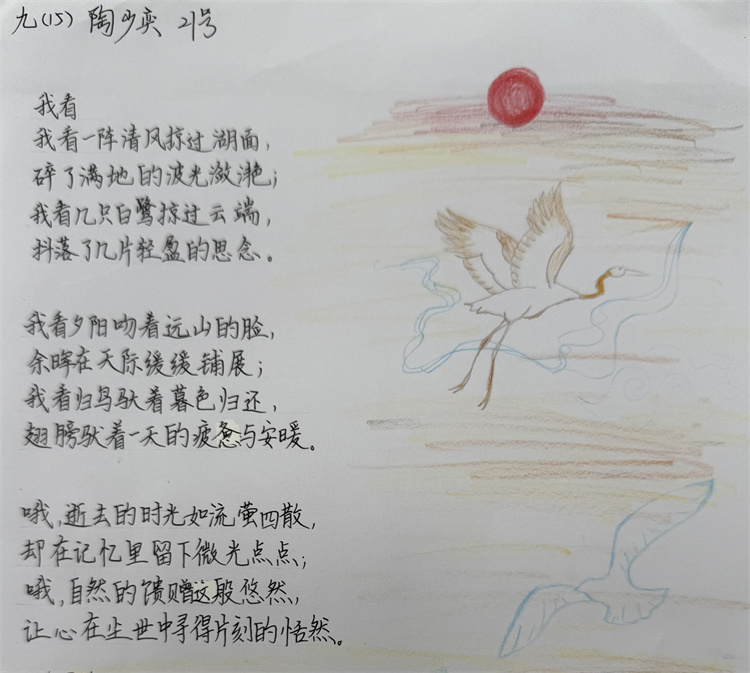 九(15) 陶少奕 21号
我看
我看一阵清风掠过湖面，
碎了满地的波光潋滟；
我看几只白鹭掠过云端，
抖落了几片轻盈的思念。
我看夕阳吻着远山的脸，
余晖在天际缓缓铺展；
我看归鸟驮着暮色归还，
翅膀驮着一天的疲惫与安暖。
哦，逝去的时光如流萤四散，
却在记忆里留下微光点点；
哦，自然的馈赠这般悠然，
让心在尘世中寻得片刻的恬然。